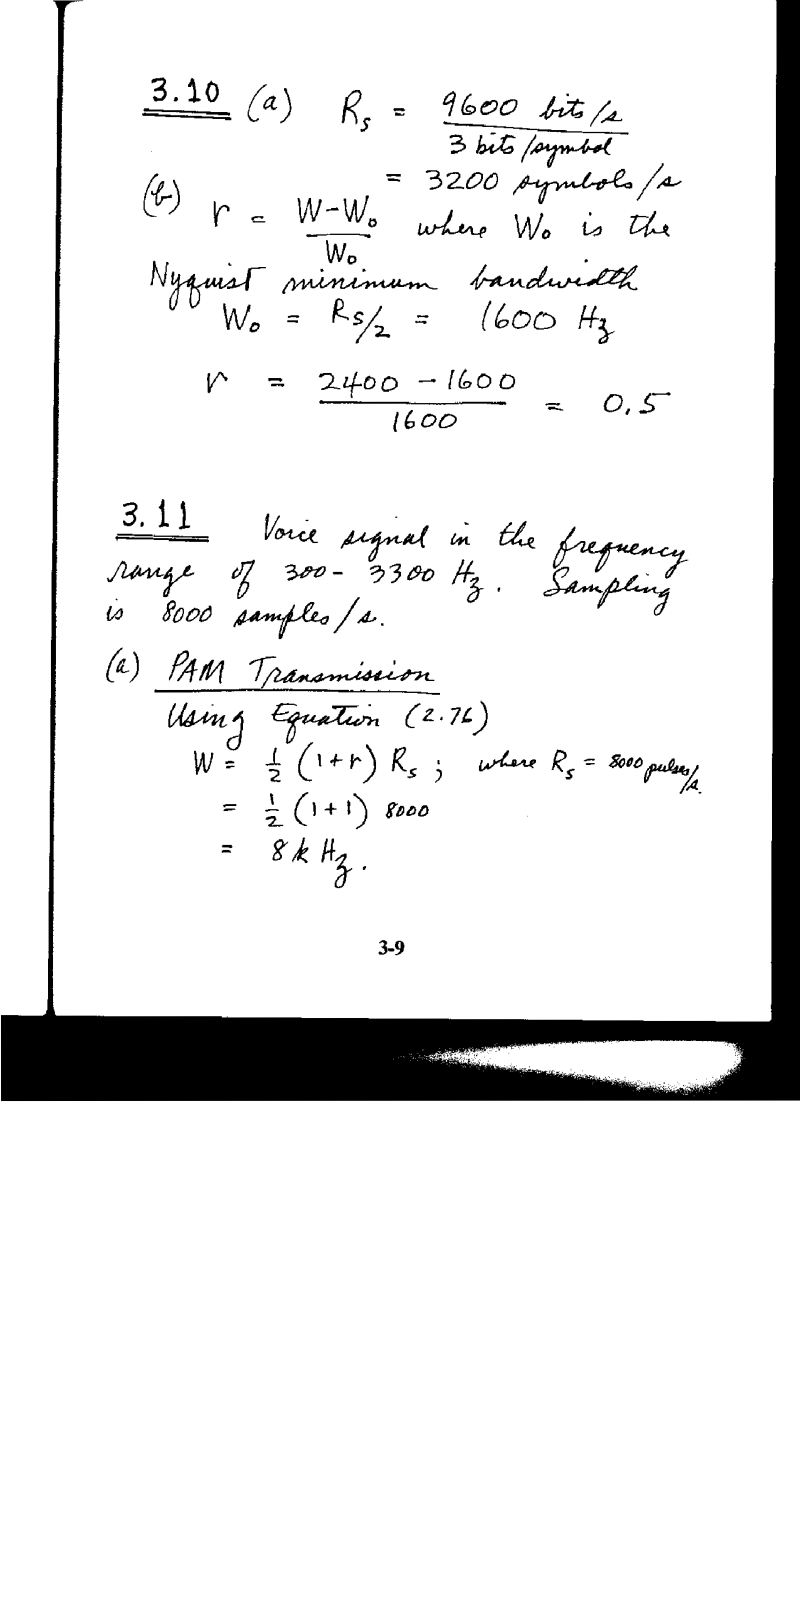 3.10 (a) Rs = 9600 bits/s / 3 bits/symbol
= 3200 symbols/s
(b) r = W-Wo / Wo where Wo is the
Nyquist minimum bandwidth
Wo = Rs/2 = 1600 Hz
r = 2400 - 1600 / 1600 = 0.5
3.11 Voice signal in the frequency
range of 300- 3300 Hz. Sampling
is 8000 samples/s.
(a) PAM Transmission
Using Equation (2.76)
W = 1/2 (1+r) Rs ; where Rs = 8000 pulses/s.
= 1/2 (1+1) 8000
= 8 k Hz.
3-9